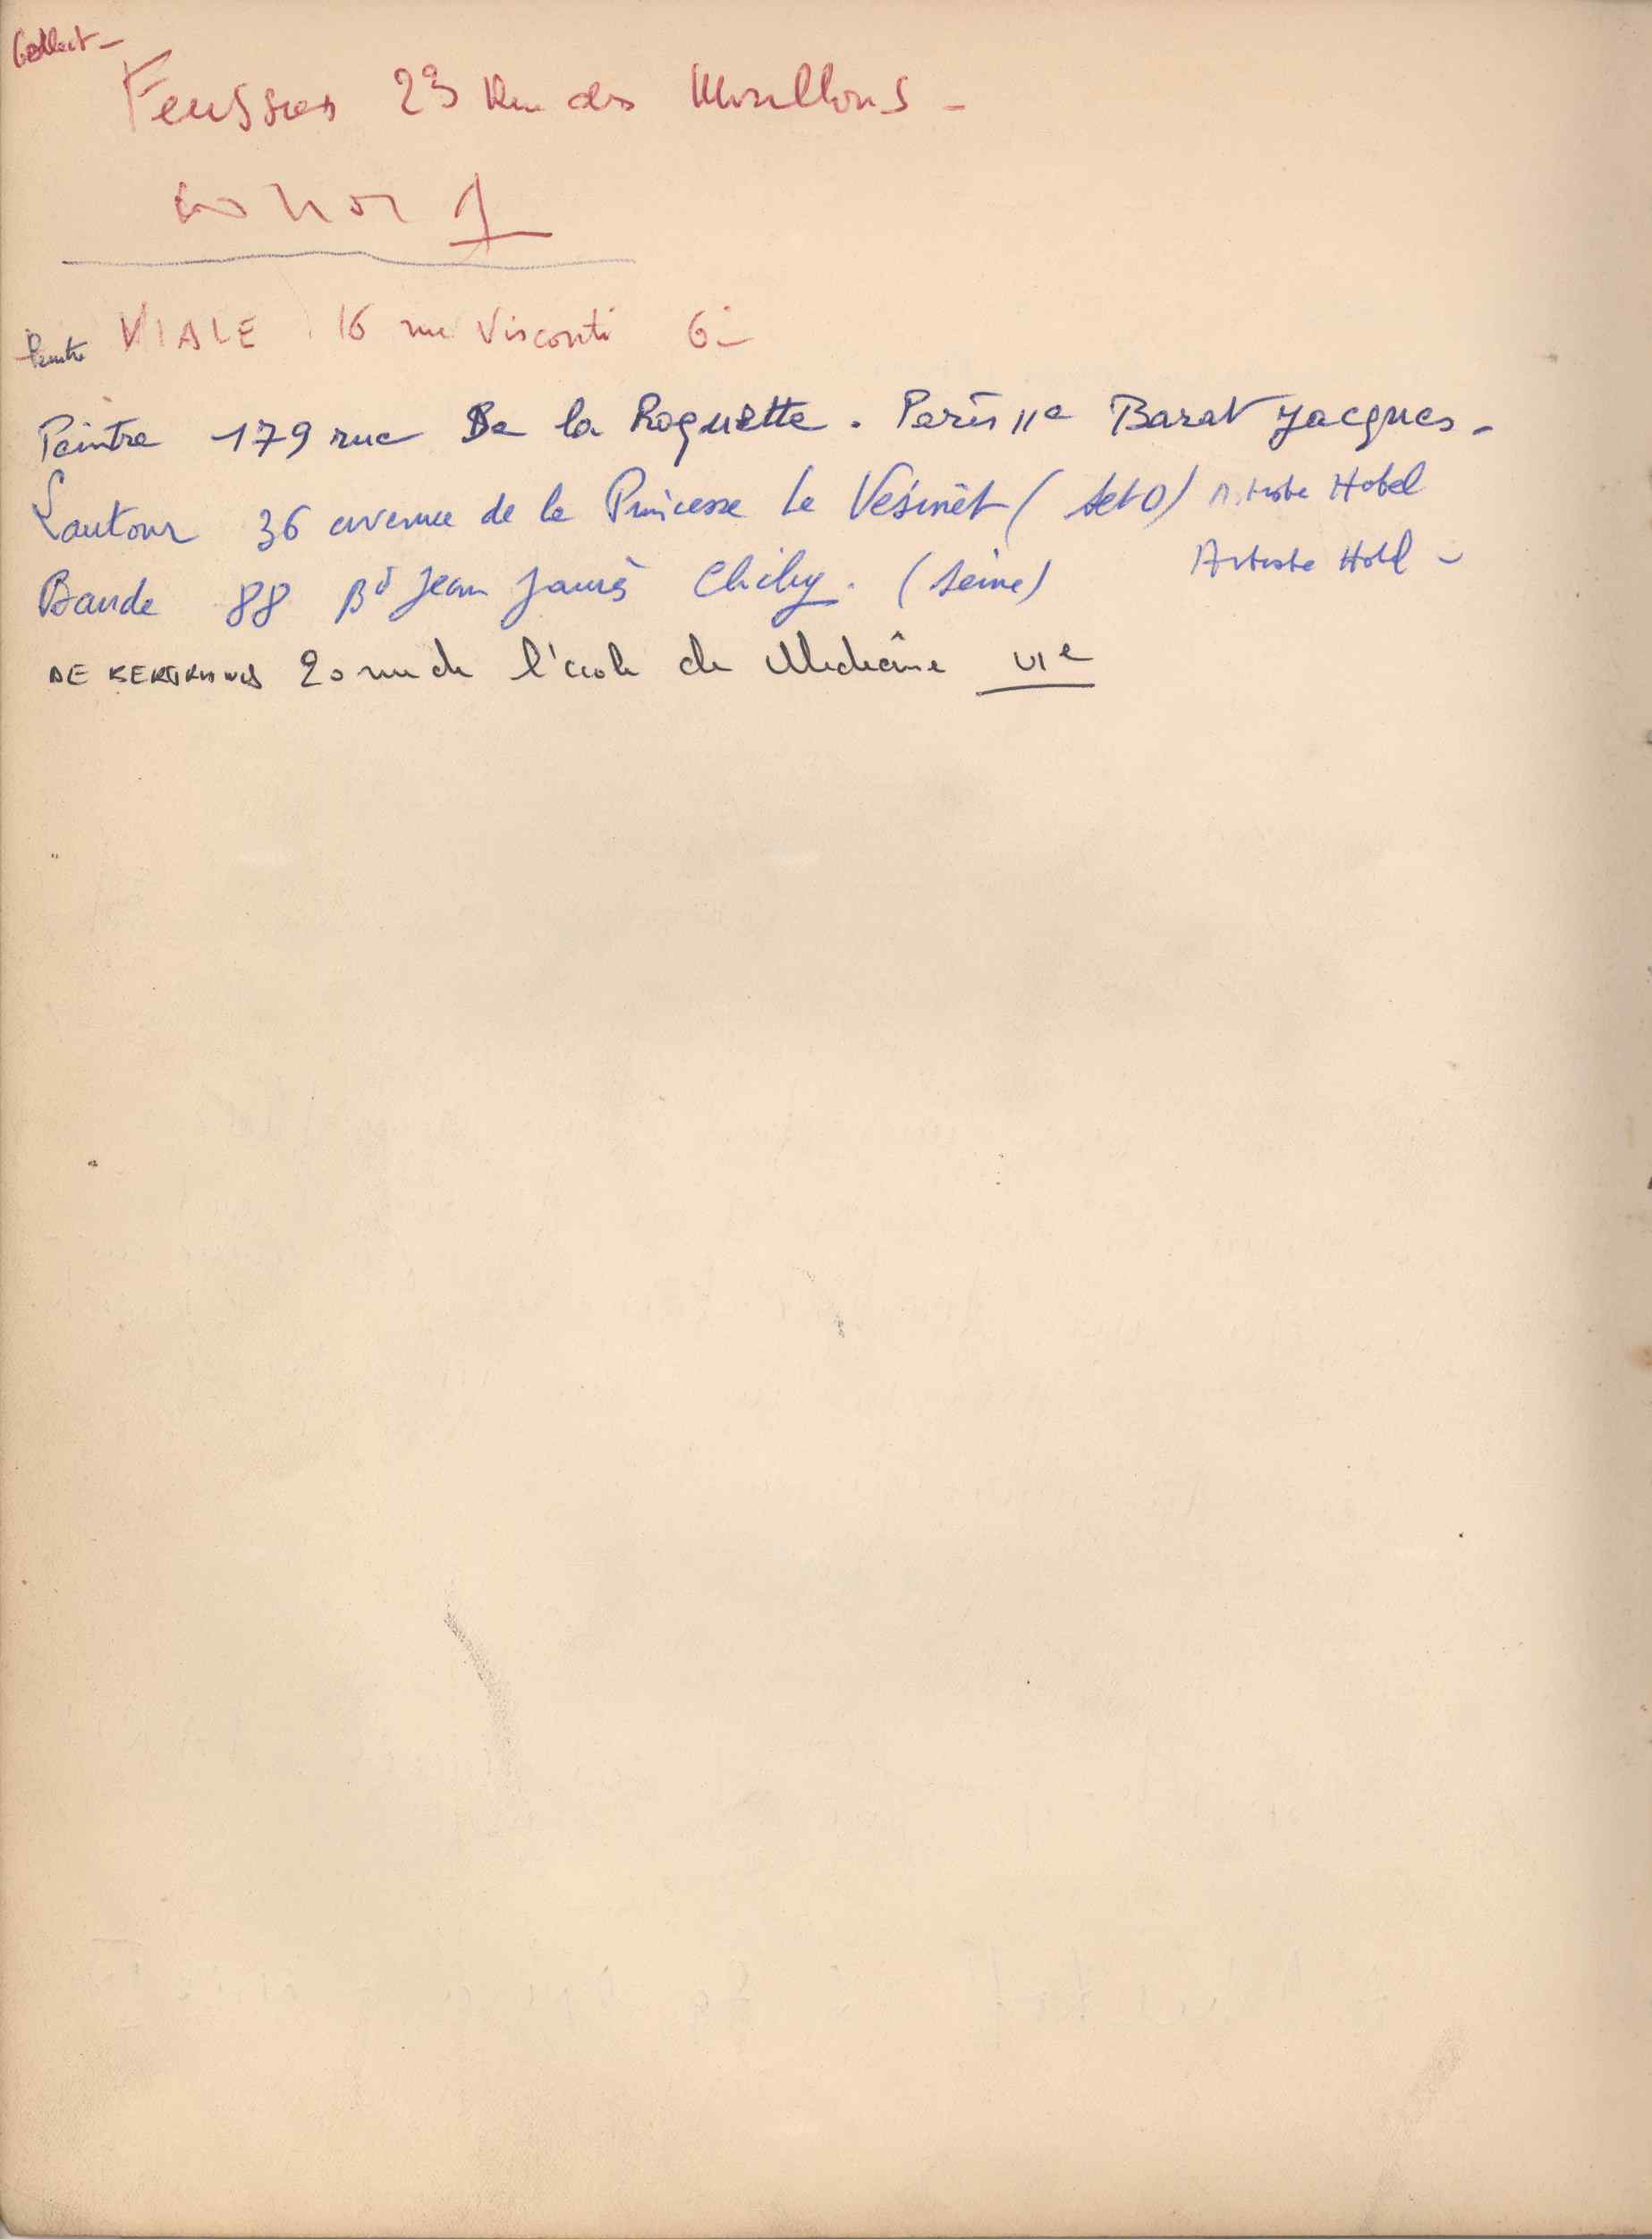 Collect -
23 Rue des Morillons -
VIALE 16 rue Visconti 6
Peintre
Peintre 179 rue De la Roquette. Paris 11e Barat Jacques -
Lautour 36 avenue de la Princesse Le Vésinet (SetO) Artiste Hotel
Baude 88 Bd Jean Jaurès Clichy. (Seine) Artiste Hotel -
DE 20 rue de l'école de Medecine VIe